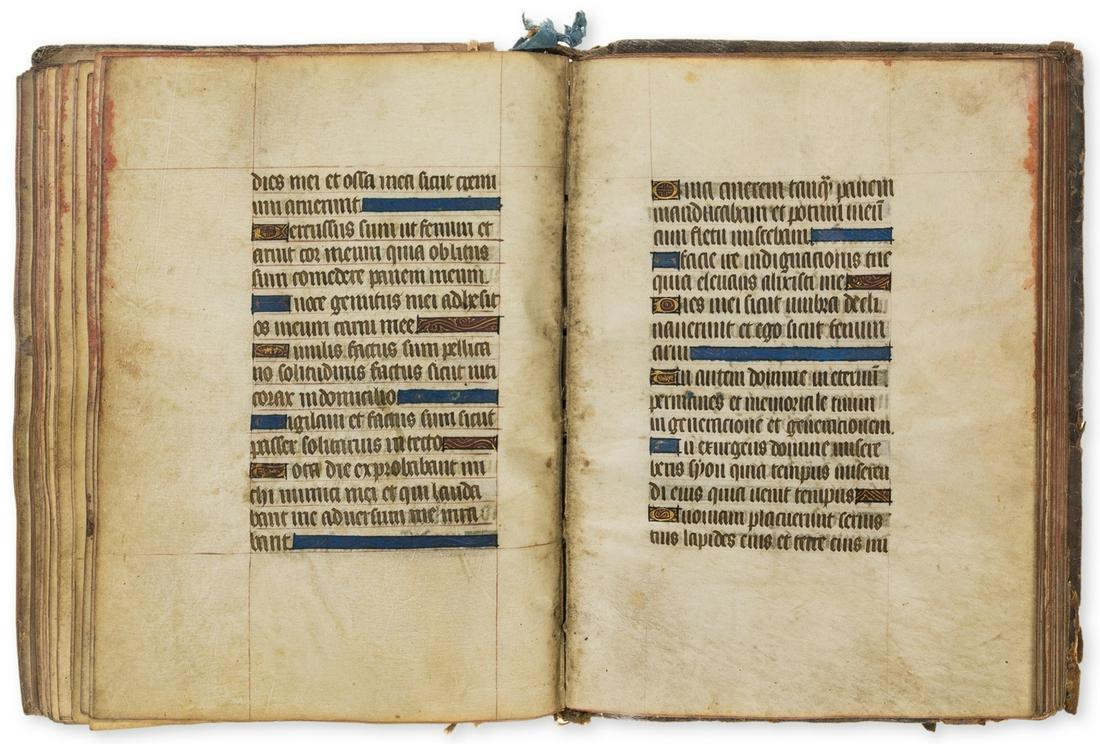 dies mei et ossa mea sicut cremi
um aruerunt
Percussus sum ut fenum et
aruit cor meum quia oblitus
sum comedere panem meum
A voce gemitus mei adhesit
os meum carni mee
Similis factus sum pellica
no solitudinis factus sicut niti
corax in domicilio
Vigilavi et factus sum sicut
passer solitarius in tecto
Tota die exprobabant mi
chi inimici mei et qui lauda
bant me adversum me iura
bant
Quia cinerem tanqȝ panem
manducabam et potum meū
cum fletu miscebam
A facie ire indignacionis tue
quia elevans alixisti me
Dies mei sicut umbra decli
naverunt et ego sicut fenum
arui
Tu autem domine in eternū
permanes et memoriale tuum
in generacione et generacionem
Tu exurgens domine misere
beris syon quia tempus miseren
di eius quia venit tempus
Quoniam placuerunt servis
tuis lapides eius et terre eius mi